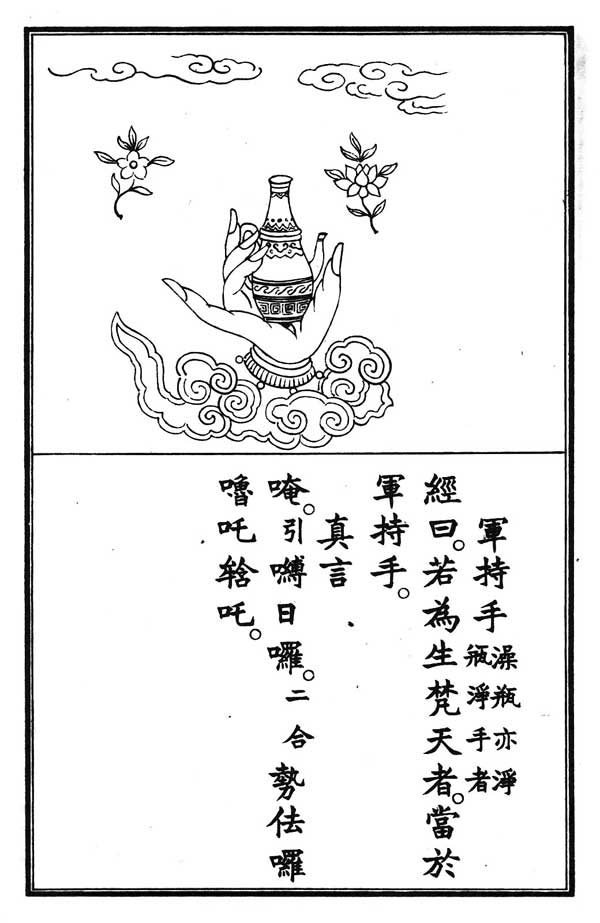 軍持手
澡瓶亦淨
瓶淨手者
經曰。若為生梵天者。當於
軍持手。
真言
唵。引嚩日囉。二合勢佉囉
嚕吒𤚥吒。